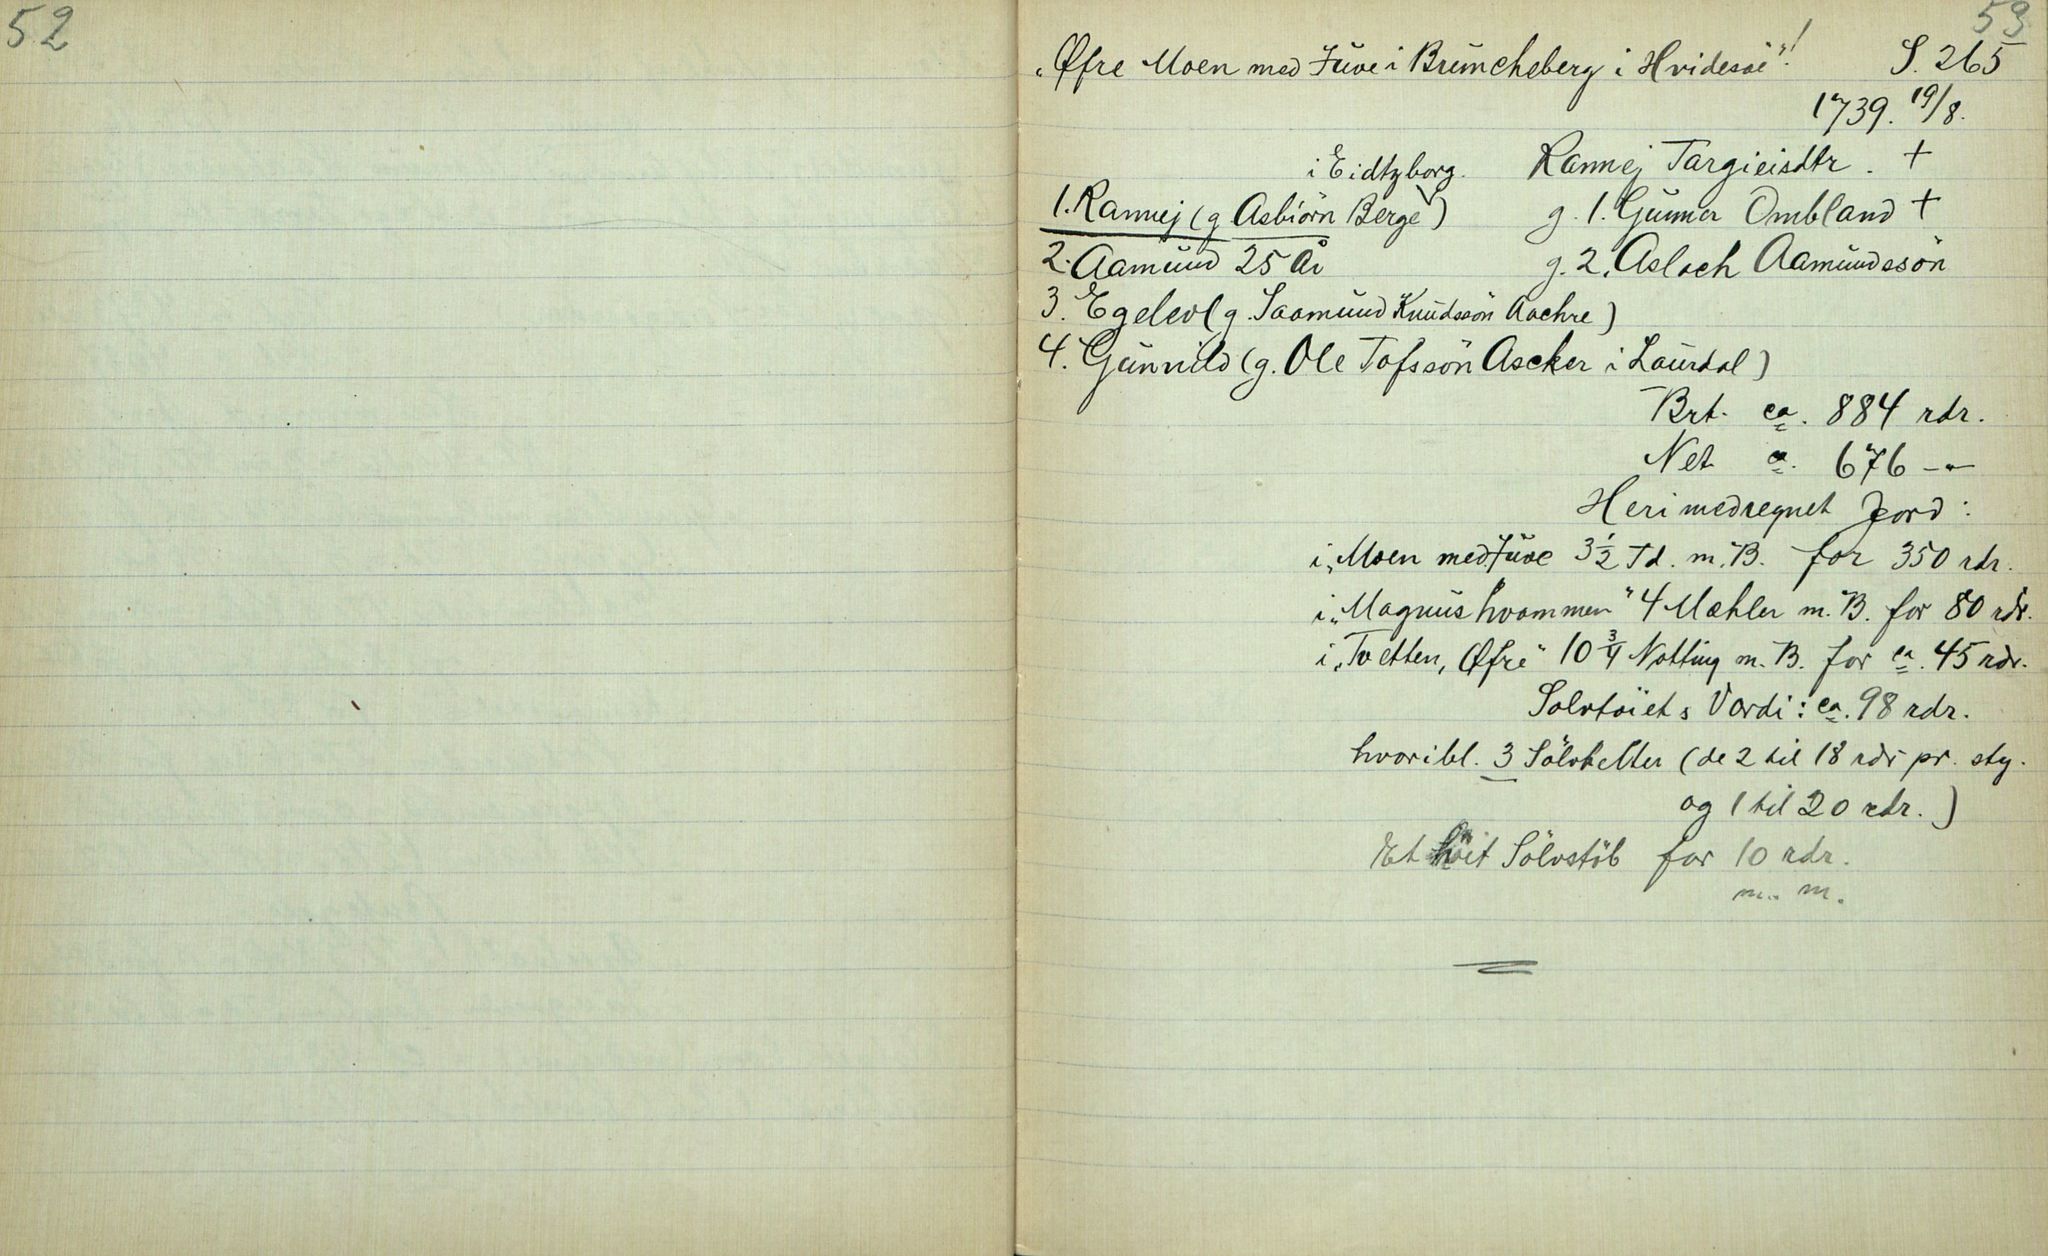 52
53
„Øfre Moen med Juve i Bruncheberg i Hvidesøe"! S. 265
1739. 19/8.
i Eidtzborg. Rannej Targieisdtr. +
1. Rannej (g Asbiörn Berge) g. 1. Gunner Ombland +
2. Aamund 25 År g. 2. Asloch Aamundssön
3. Egelev (g. Saamund Knudssön Aachre)
4. Gunnild (g. Ole Tofssön Ascker i Laurdal)
Brt. ca. 884 rdr.
Net ca. 676 –"–
Heri medregnet Jord:
i „Moen med Juve 3 1/2 Td. m. B. for 350 rdr.
i „Magnushvammen" 4 Mæhler m. B. for 80 rdr.
i „Tvetten, Øfre" 10 3/4 Notting m. B. for ca. 45 rdr.
Sølvtöiets Værdi: ca. 98 rdr.
hvoribl. 3 Sölvbelter (de 2 til 18 rdr pr. sty.
og 1 til 20 rdr.)
Et höit Sölvstöb for 10 rdr.
m. m.